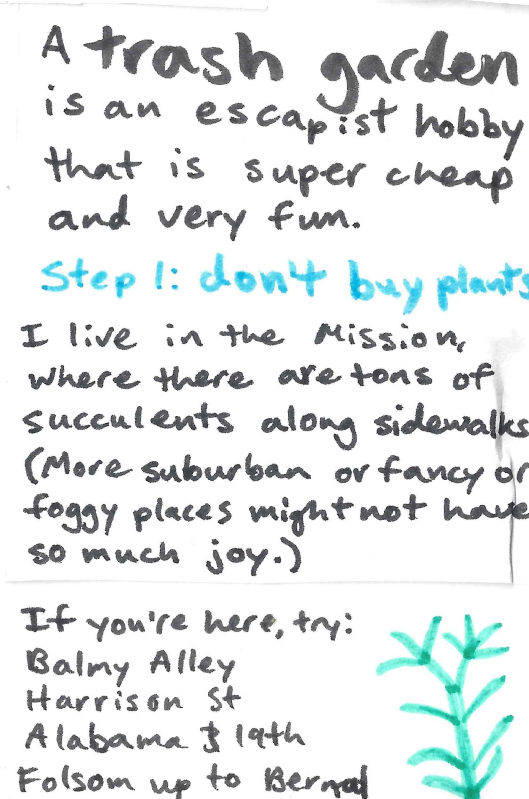 A trash garden
is an escapist hobby
that is super cheap
and very fun.
Step 1: don't buy plants
I live in the Mission,
where there are tons of
succulents along sidewalks
(More suburban or fancy or
foggy places might not have
so much joy.)
If you're here, try:
Balmy Alley
Harrison St
Alabama & 19th
Folsom up to Bernal